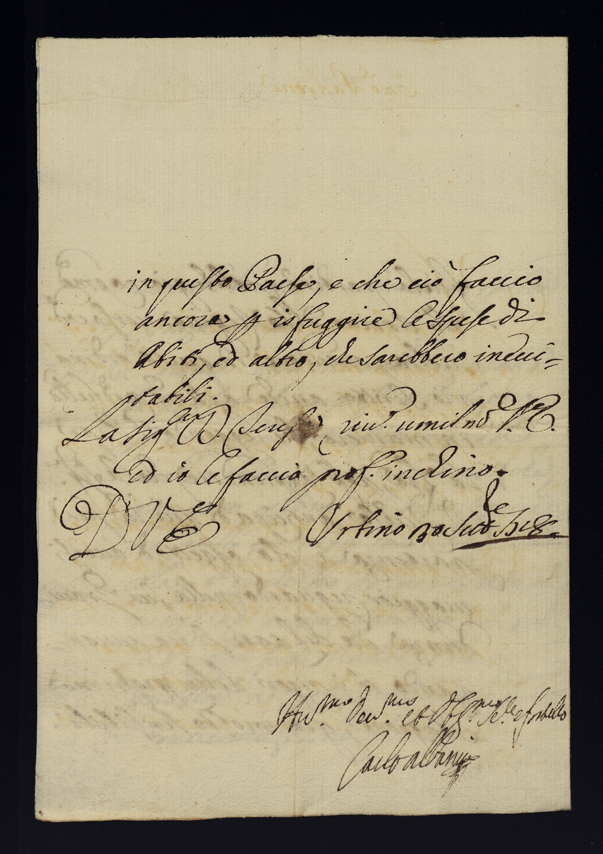 in questo Paese, e che ciò faccio
ancora p isfuggire le spese di
Abiti, ed altro, che sarebbero inevi=
tabili.
La Sig.ra D. riv. umilm.e V.E.
ed io le faccio prof. inchino.
D V E Urbino 30
Hu.mo Dev.mo et Obl.mo Se.re e fratello
Carlo Albani